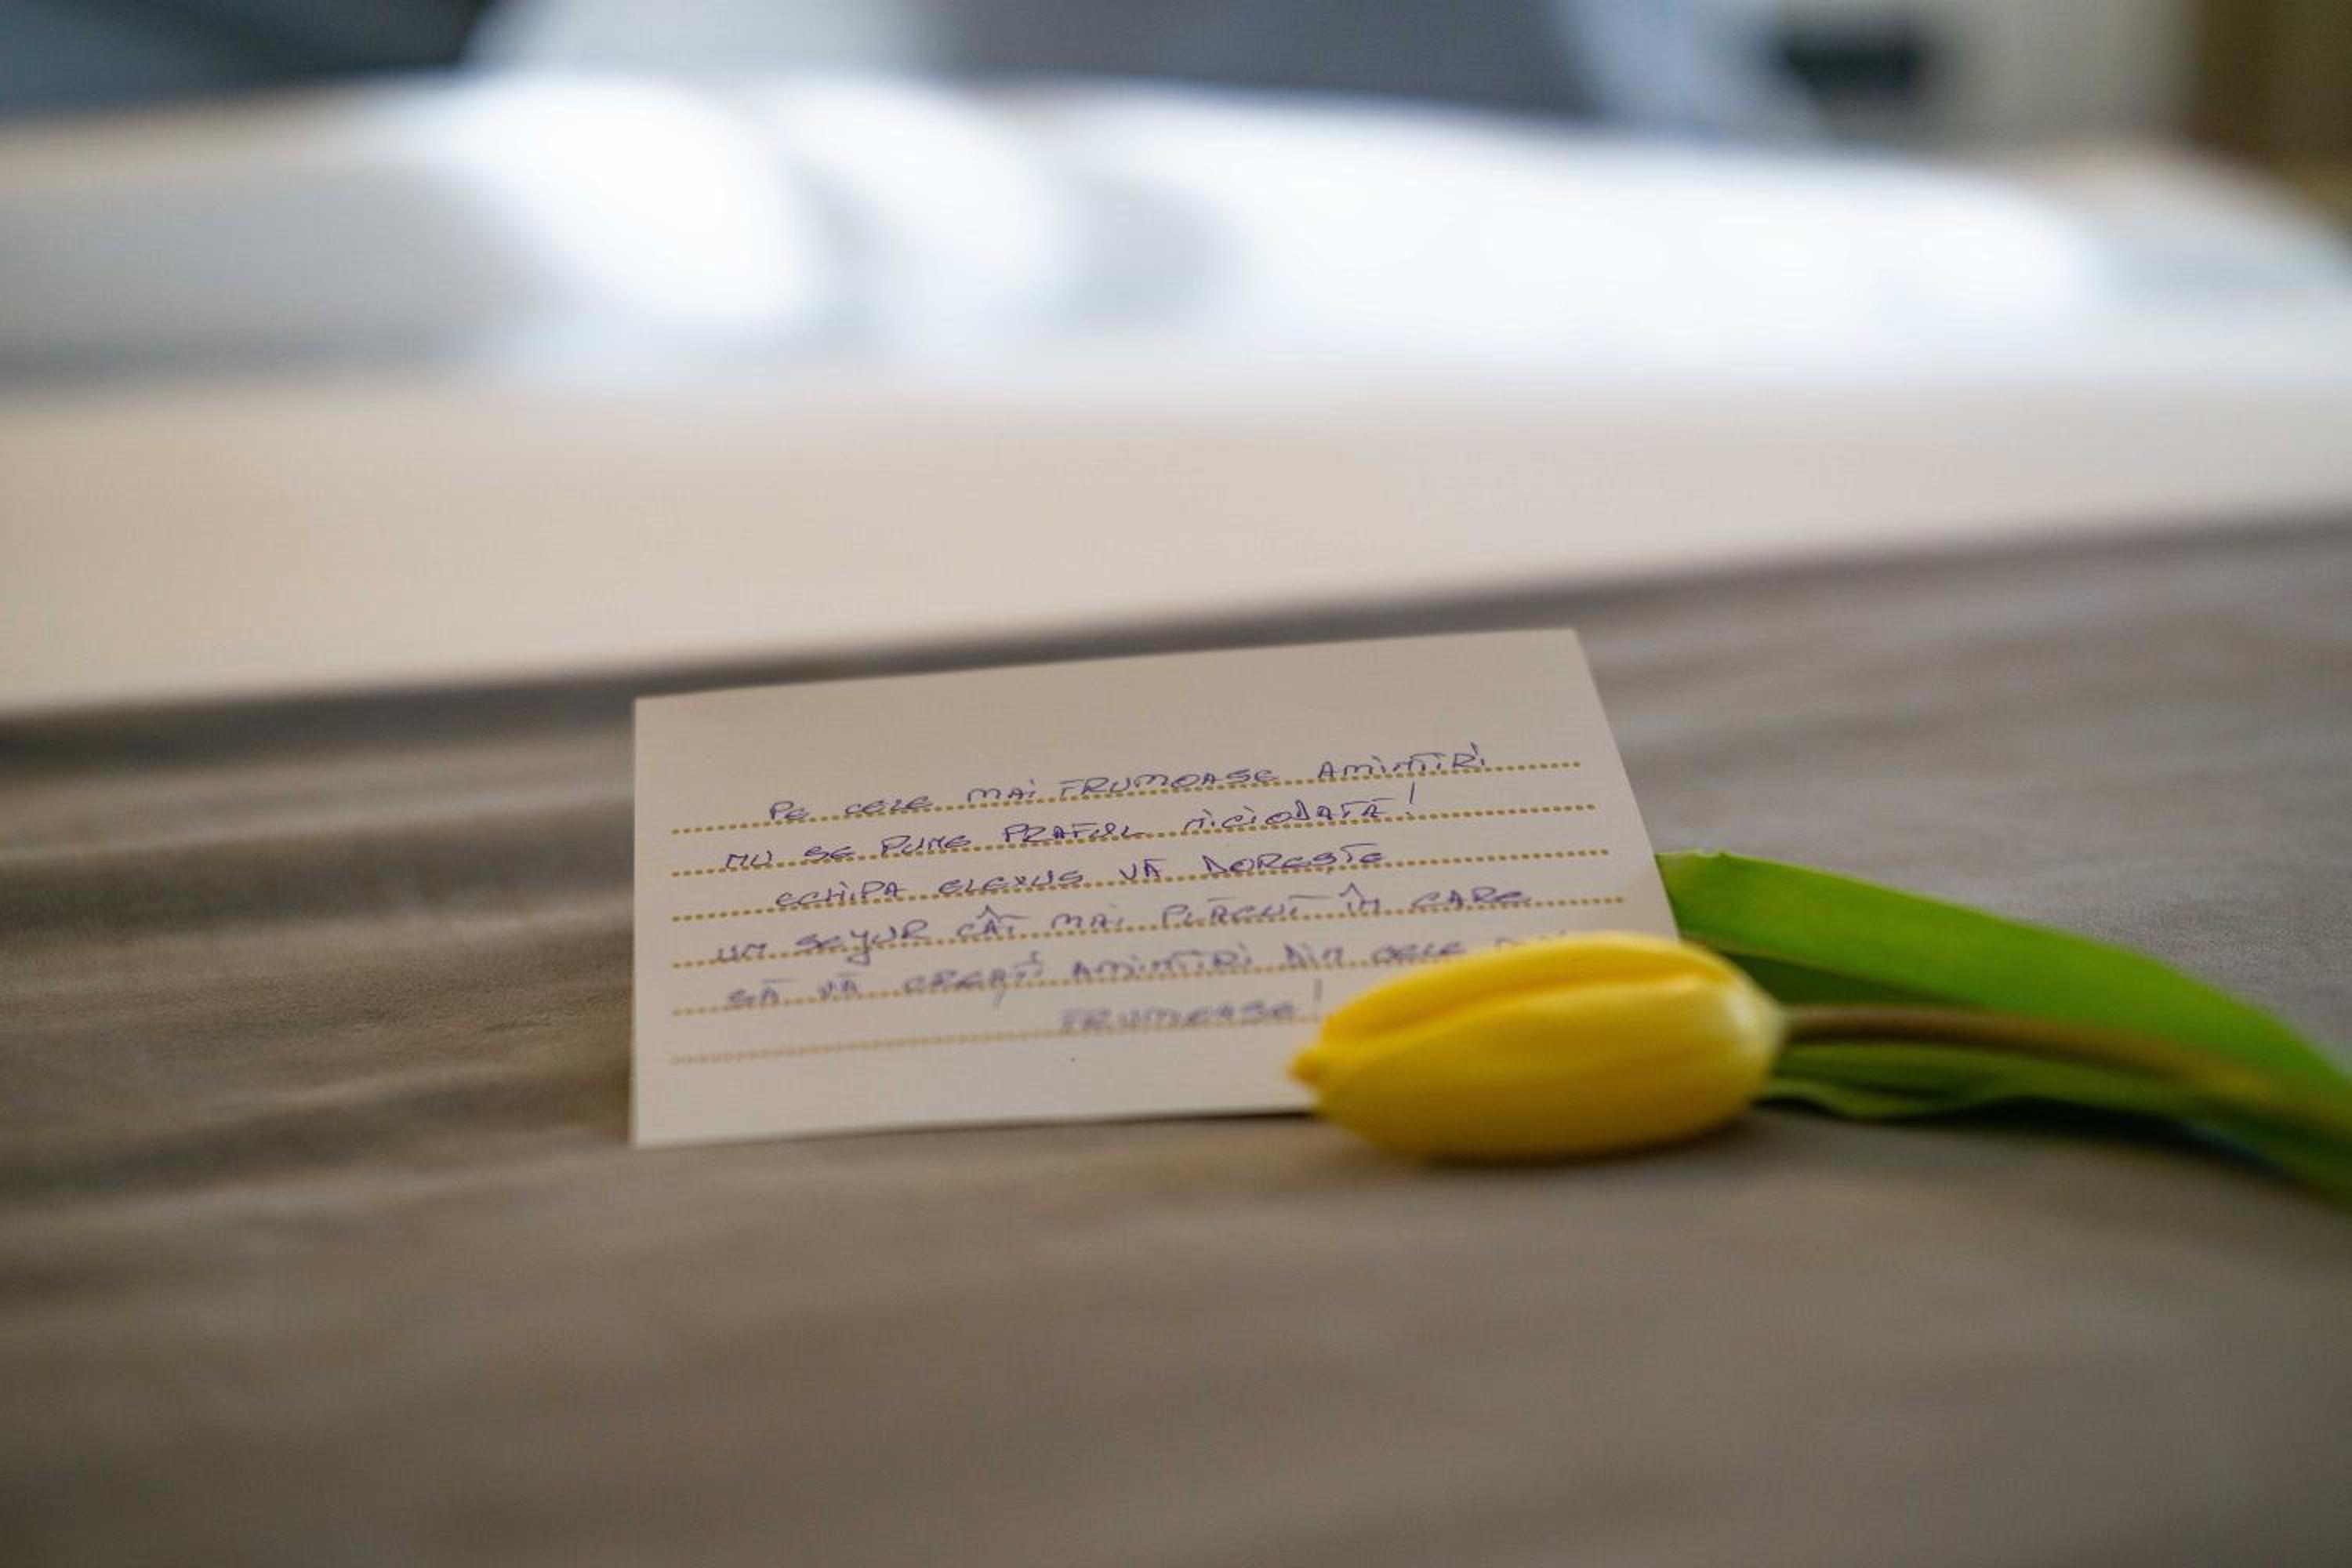 Pe cele mai frumoase amintiri
nu se pune praful niciodată!
Echipa Elexus vă dorește
un sejur cât mai plăcut în care
să vă creați amintiri din cele
frumoase!